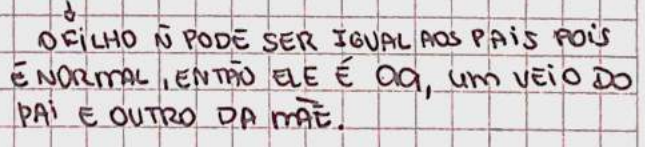 O FILHO Ñ PODE SER IGUAL AOS PAIS POIS
É NORMAL, ENTÃO ELE É aa, um VEIO DO
PAI E OUTRO DA MÃE.